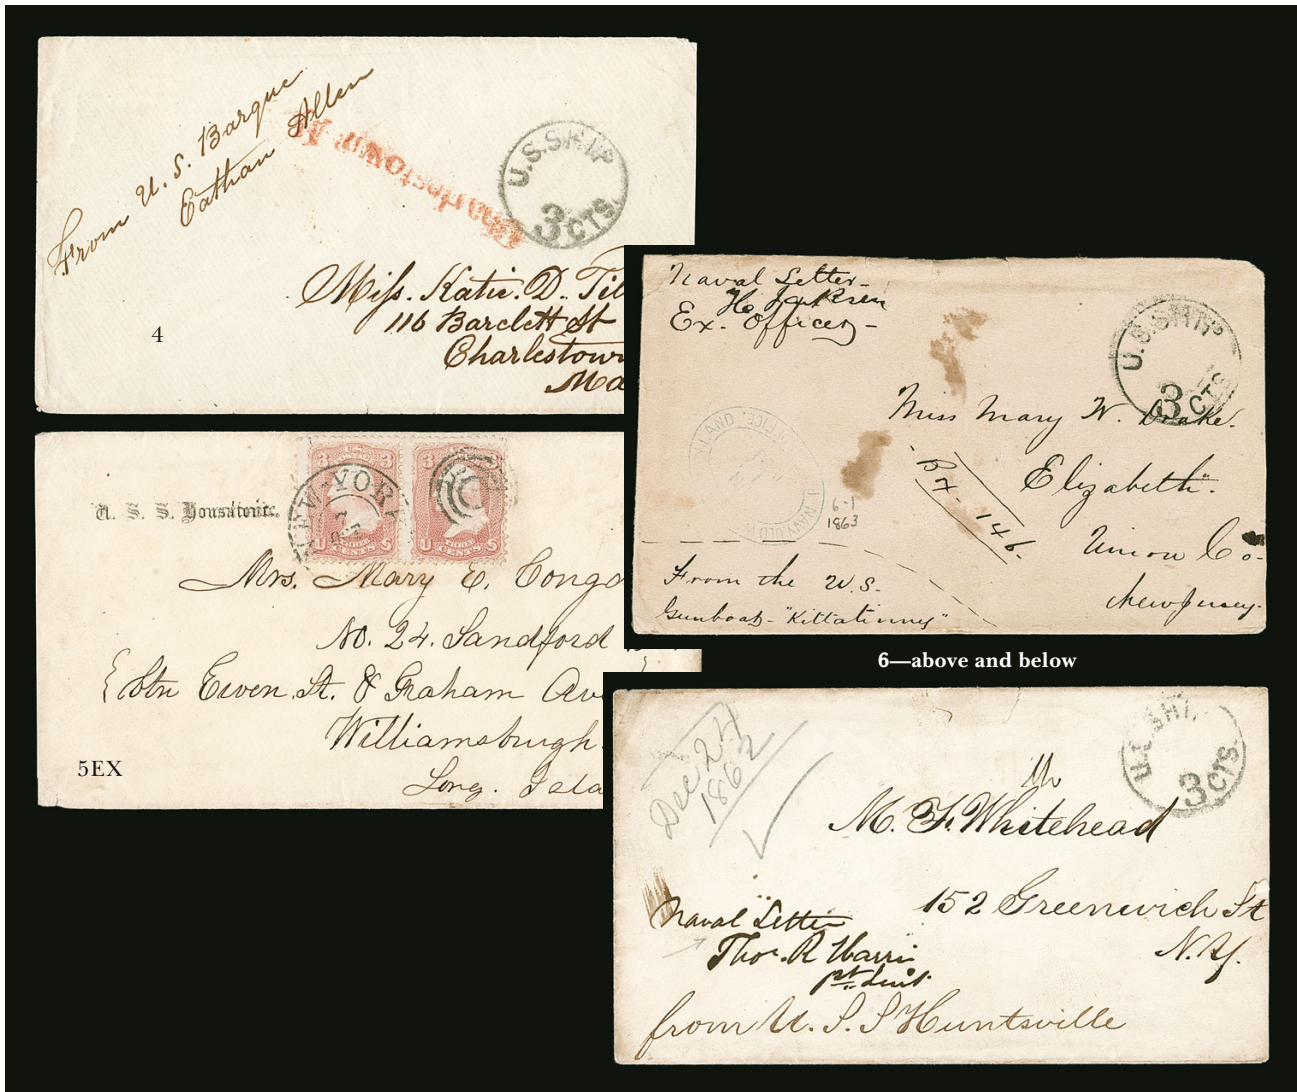 From U. S. Barque
Eathan Allen
Charlestown. M
U.S.SHIP
3 CTS.
Miss. Katie. D. Til
116 Bartlett St
Charlestown
Ma
4
U. S. S. Housatonic.
3 3
U CENTS S
NEW-YORK
OCT
3 3
U CENTS S
Mrs. Mary E. Congd
No. 24. Sandford
btn Ewen. St. & Graham Av
Williamsburgh.
Long. Isla
5EX
Naval Letter-
H. Jackson
Ex. Officer-
U.S.SHIP
3 CTS
Miss Mary W. Drake.
Elizabeth.
Bx. 146.
Union Co-
New Jersey.
6-1
1863
From the U.S.
Gunboat- "Kittatinny"
6—above and below
Dec 24
1862
U.S.SHIP
3 CTS.
Mr
M. F. Whitehead
152 Greenwich St
N. Y.
Naval Letter
Thos. R Harris
from U. S. S Huntsville